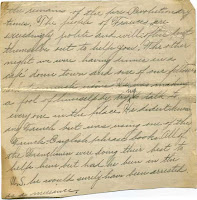 the remains of the pre-Revolutionary
times. The people of France are
exceedingly polite and will often put
themselves out to help you. The other
night we were having dinner in a
cafe down town and one of our fellows
a fool of himself by trying to talk to
everyone in the place. He didn't know
any French but was using one of the
French English phrase books. All of
the Frenchmen were doing their best to
help him but had he been in the
U.S. he would surely have been arrested
as a nuisance.